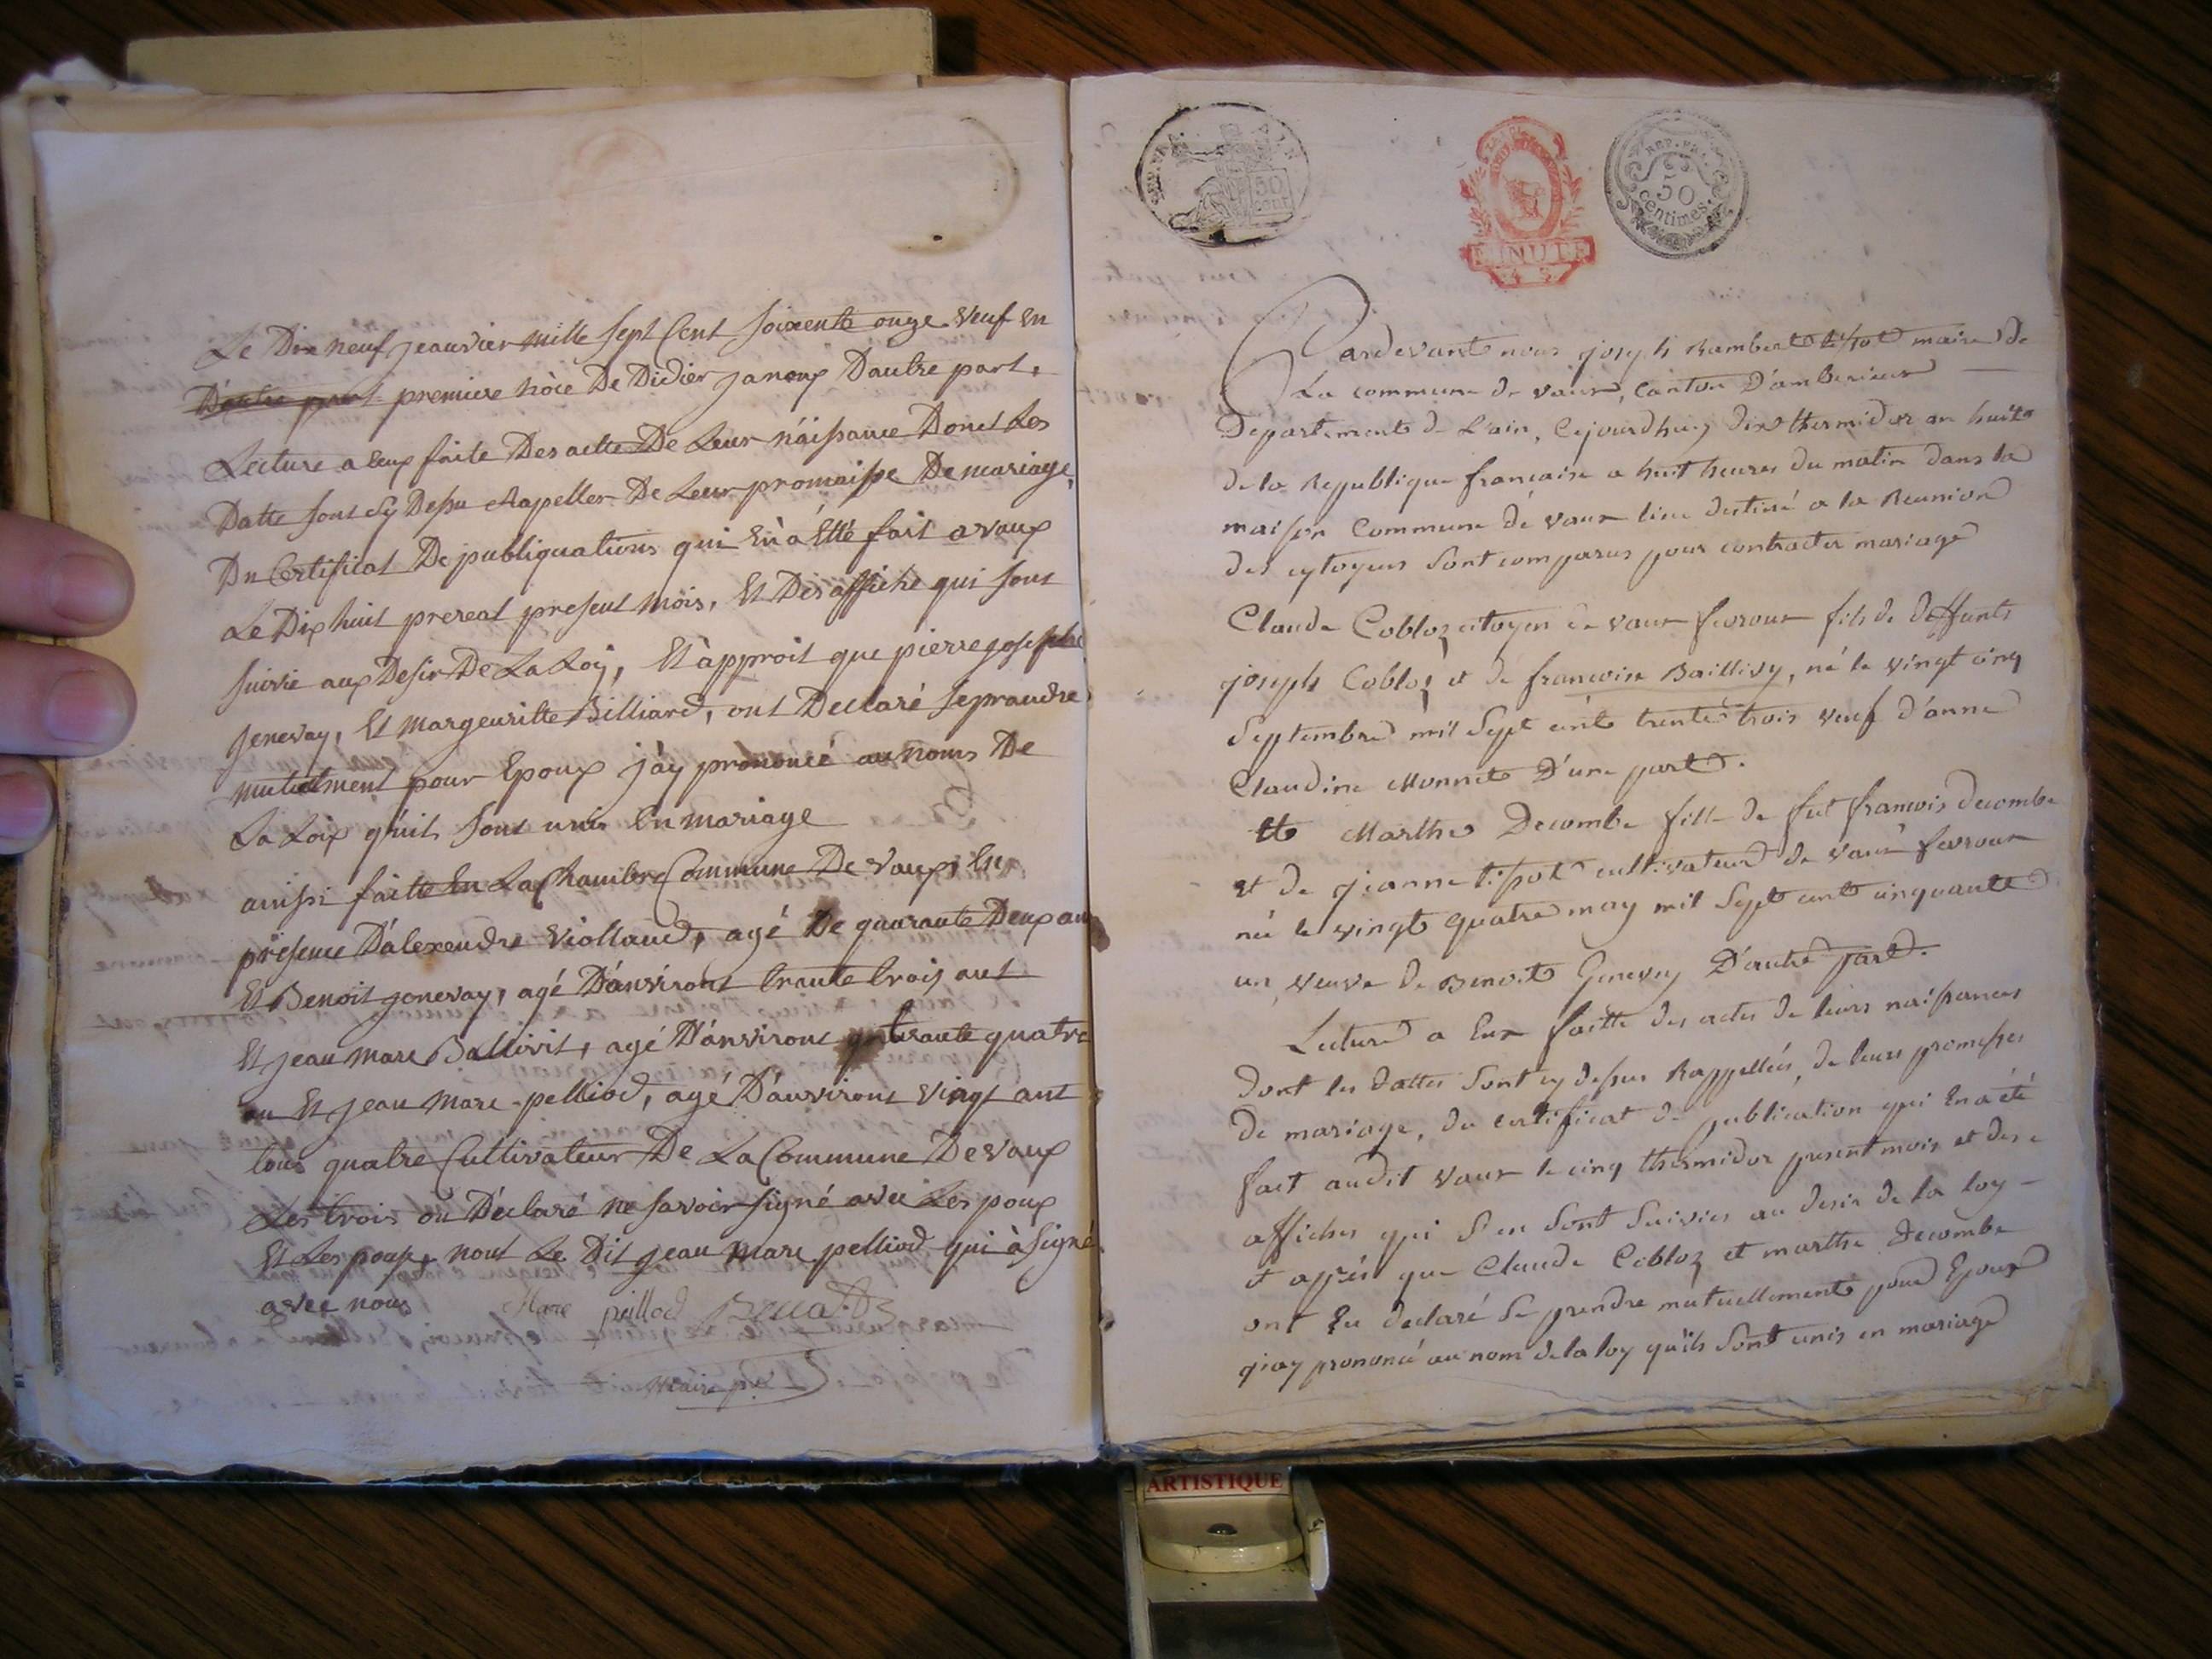 Le Dix neuf jeanvier mille sept Cent soixente onze veuf en
D'autre part premiere nòce De Didier janoux Dautre part,
Lecture a eux faite Des acte De Leur náissance Dont Les
Datte sont Sy Dessu Rapeller De Leur promaisse De mariage,
Du Certificat De publiquations qui En à Etté fait a vaux
Le Dix huit prereal present mois, Et Des affiche qui sont
suivie aux Desir De La Loy, Et àpproit que pierre josephe
jenevay, Et margeuritte Billiard, ont Declaré se prandre
mutuelment pour Epoux j'ày prononcé au noms De
La Loix qu'uit sont unis En mariage
ainssi faitte En La Chambre Commune De vaux, En
présence D'alexendre Viollaud, agé De quarante Deux an
Et Benoit jenevay, agé D'anviront trante trois ant
Et jean mare Ballivit, agé D'anviront trante quatre
an Et jean mare pelliod, agé D'anviront vingt ant
tous quatre Cultivateur De La Commune De vaux
Les trois on Déclaré ne savoir signé avec Les poux
Et Les poux, nont Le Dit jean mare pelliod qui à signé
avec nous
Mare peillod
maire
REP. FRA.
AIN
50
cent
MINUTE
REP. FRA.
50
centimes
Pardevant nous joseph Rambert tissot maire de
La commune de vaux, canton D'amberieux
Departement de L'ain, Cejourdhuy dix thermidor an huit
de la Republique francaise a huit heures du matin dans la
maison Commune dé vaux lieu destiné a la Reunion
des cytoyens sont comparus pour contracter mariage
Claude Cobloz citoyen de vaux fevroux fils de deffunts
joseph Cobloz et de francoise Baillivy, né le vingt cinq
Septembre mil Sept cent trente trois veuf d'anne
Claudine Monnet D'une part.
Et Marthe Decombe fille de fut francois decombe
et de jeanne tissot cultivateur de vaux fevroux
née le vingt quatre may mil Sept cent cinquante
un, veuve de Benoit Genevey D'autre part.
Lecture a Eux faitte des actes de leurs naissances
dont les dattes sont cy dessus Rappellées, de leurs promesses
de mariage, du certificat de publication qui En a été
fait audit vaux le cinq thermidor present mois et des
affiches qui s'en sont suivies au desir de la loy
et après que Claude Cobloz et marthe Decombe
ont Eu declaré Se prendre mutuellement pour Epoux
j'ay prononcé au nom de la loy qu'ils sont unis en mariage
ARTISTIQUE